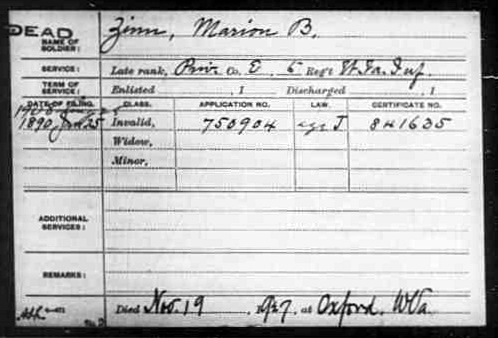 DEAD
NAME OF SOLDIER: Zinn, Marion B.
SERVICE: Late rank, Priv. Co. E, 6 Reg't W.Va. Inf.
TERM OF SERVICE: Enlisted , 1 Discharged , 1
DATE OF FILING. CLASS. APPLICATION NO. LAW. CERTIFICATE NO.
1890 Invalid, 750904 J 841635
Widow,
Minor,
ADDITIONAL SERVICES:
REMARKS:
Died Nov. 19 1927, at Oxford, W.Va.